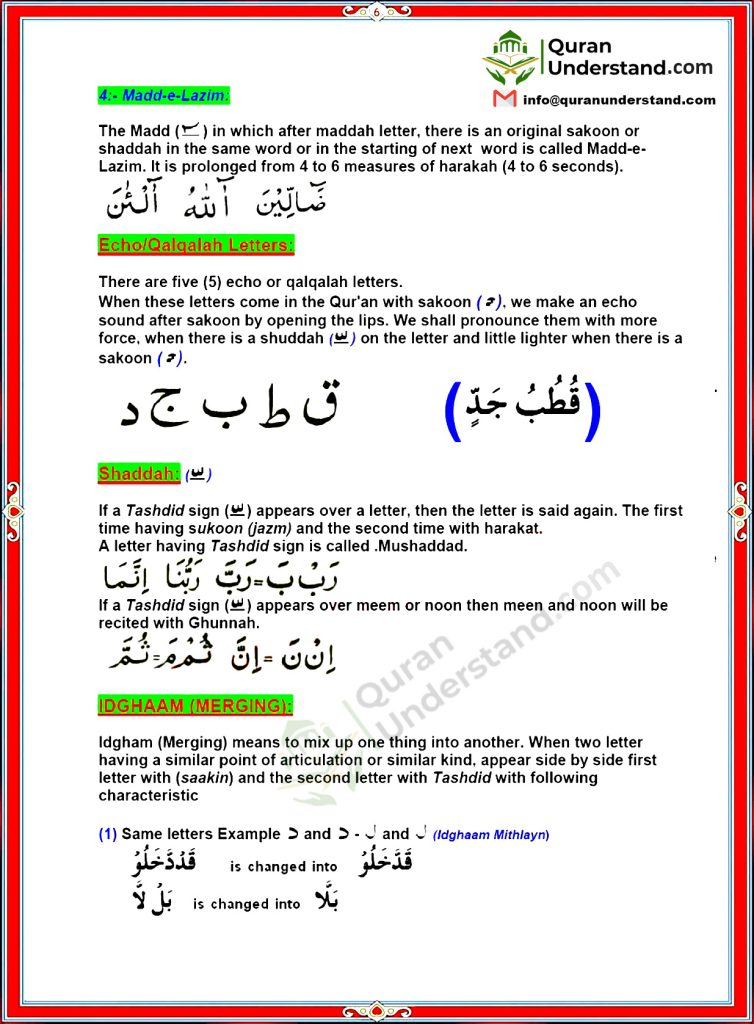 6
Quran
Understand.com
info@quranunderstand.com
4:- Madd-e-Lazim:
The Madd ( ۤ ) in which after maddah letter, there is an original sakoon or
shaddah in the same word or in the starting of next word is called Madd-e-
Lazim. It is prolonged from 4 to 6 measures of harakah (4 to 6 seconds).
ضَآلِّيْنَ آللهُ آلْـٰٔنَ
Echo/Qalqalah Letters:
There are five (5) echo or qalqalah letters.
When these letters come in the Qur'an with sakoon ( ْ ), we make an echo
sound after sakoon by opening the lips. We shall pronounce them with more
force, when there is a shuddah ( ّ ) on the letter and little lighter when there is a
sakoon ( ْ ).
ق ط ب ج د (قُطُبُ جَدٍّ)
Shaddah: ( ّ )
If a Tashdid sign ( ّ ) appears over a letter, then the letter is said again. The first
time having sukoon (jazm) and the second time with harakat.
A letter having Tashdid sign is called .Mushaddad.
رَبْ بَ = رَبَّ رَبُّنَا اِنَّمَا
If a Tashdid sign ( ّ ) appears over meem or noon then meen and noon will be
recited with Ghunnah.
اِنْ نَ = اِنَّ ثُمْ مَ = ثُمَّ
Quran
Understand.com
IDGHAAM (MERGING):
Idgham (Merging) means to mix up one thing into another. When two letter
having a similar point of articulation or similar kind, appear side by side first
letter with (saakin) and the second letter with Tashdid with following
characteristic
(1) Same letters Example د and د - ل and ل (Idghaam Mithlayn)
قَدْدَّخَلُوْ is changed into قَدَّخَلُوْ
بَلْ لَّا is changed into بَلَّا